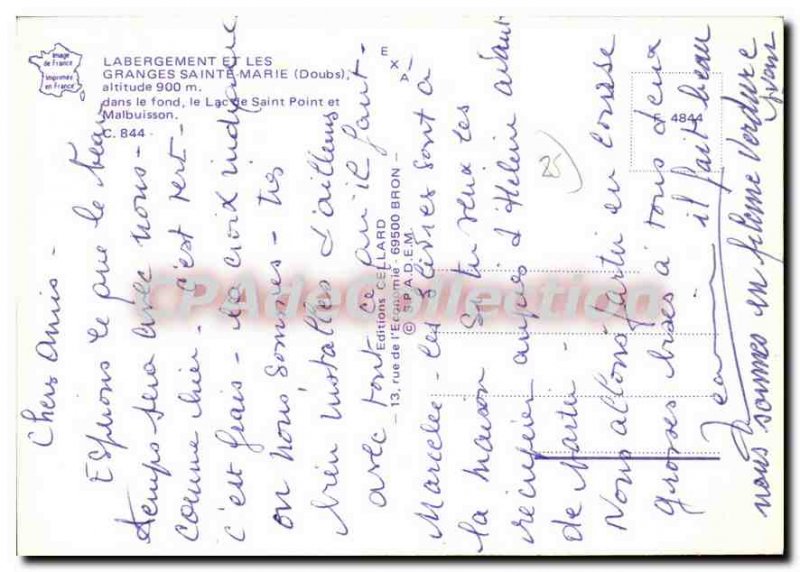 Image
de France
Imprimée
en France
LABERGEMENT ET LES
GRANGES SAINTE-MARIE (Doubs),
altitude 900 m.
dans le fond, le Lac de Saint Point et
Malbuisson.
C. 844
E
X
A
4844
Editions CELLARD
— 13, rue de l'Economie - 69500 BRON —
© S.P.A.D.E.M.
CPAdeCollection
25
Chers Amis -
Espérons que le beau
temps sera avec nous -
comme hier - c'est vert -
c'est frais - la croix indique
où nous sommes - très
bien installés d'ailleurs
avec tout ce qu'il faut -
Marcelle - les livres sont à
la maison Si tu veux les
récupérer auprès d'Hélène avant
de partir -
Nous allons partir en course
grosses bises à tous deux
il fait beau
Jean
nous sommes en pleine verdure
Yvon